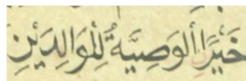 خَيْرَا الوَصِيَّةُ لِلْوَالِدَيْنِ